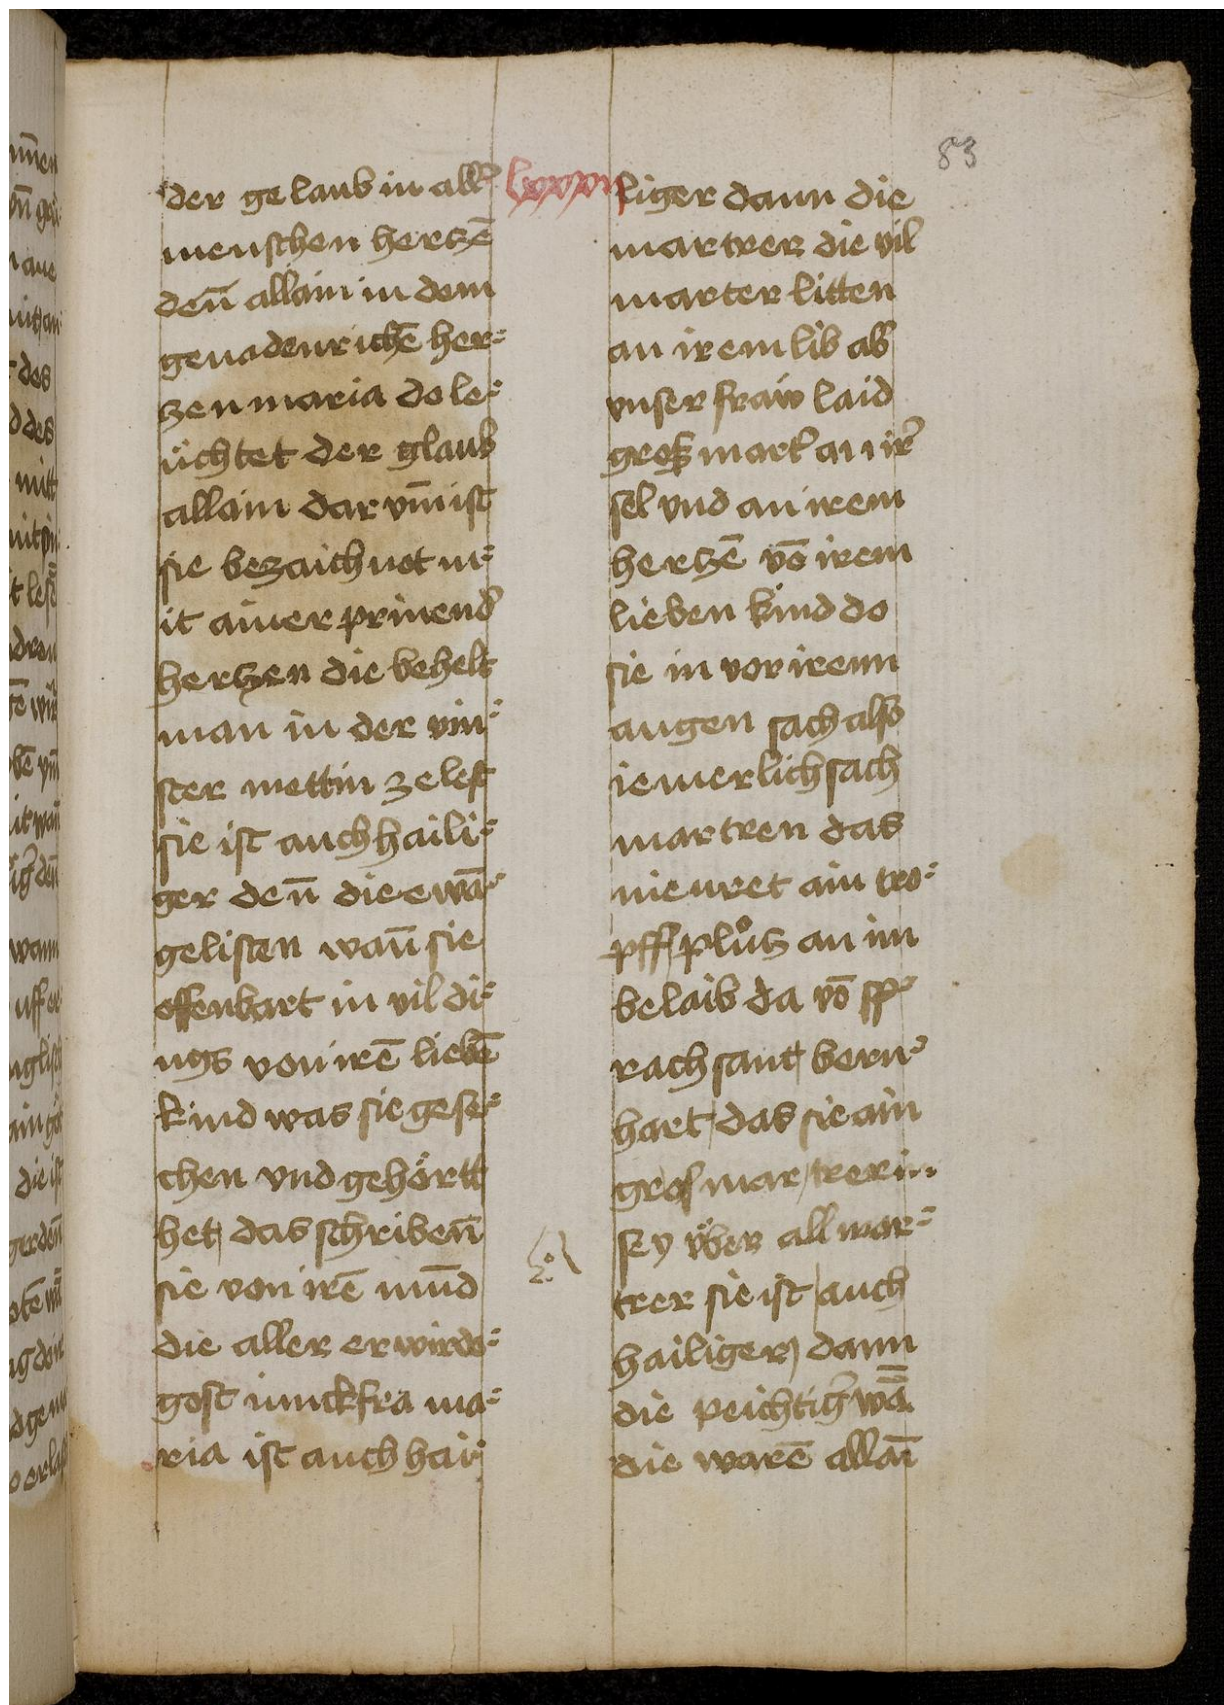 83
lxxxiij
der gelaub in allꝰ
menschen herczē
deñ allain in dem
genadenrichē her⸗
zen maria do le⸗
üchtet der glaub
allain dar vm̄ ist
sie bezaichnet m⸗
it ainer prinendꝰ
herczen die behelt
man in der vin⸗
ster mettin ze lest
sie ist auch haili⸗
ger deñ die ewā⸗
gelisten wañ sie
offenbart in vil di⸗
ngs von irē liebē
kind was sie gese⸗
chen vnd gehörtt
het das schribeñ
sie von irē mūd
die aller erwirdi⸗
gost iunckfra ma⸗
ria ist auch hai⸗
liger dann die
martrer die vil
marter litten
an irem lib abꝰ
vnser fraw laid
gross martꝰ an irꝰ
sel vnd an irem
herczē vō irem
lieben kind do
sie in vor irenn
augen sach also
iemerlich sach
martren das
nieuret ain tro⸗
pff plůtz an im
belaib da vō sp⸗
rach sant bern⸗
hart das sie ain
gros martrerin
sey v̈ber all mar⸗
trer sie ist auch
hailiger dann
die peichtigꝰ wā
die warē allaī